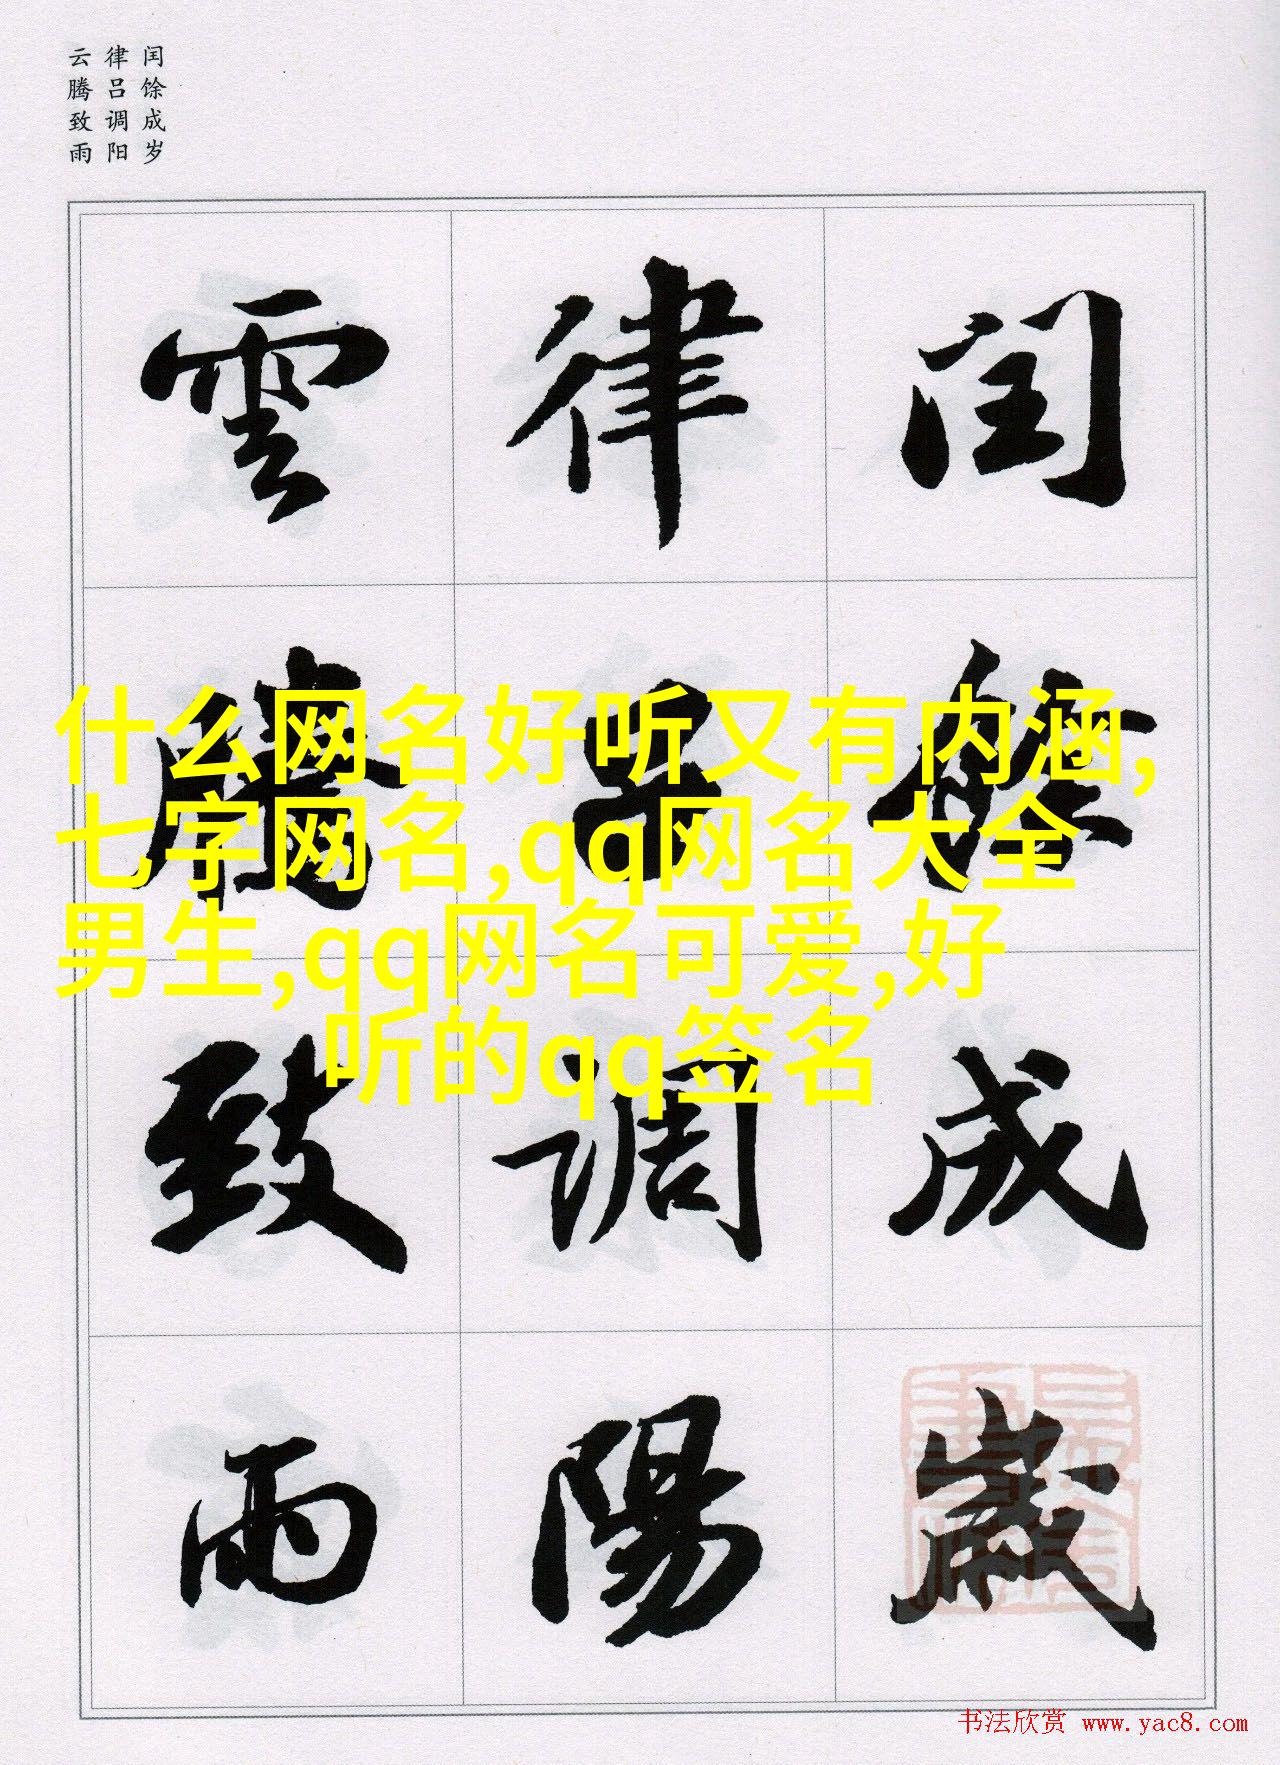 闰馀成岁
律吕调阳
云腾致雨
閏餘成歲
律吕調陽
雲騰致雨
什么网名好听又有内涵,
七字网名,qq网名大全
男生,qq网名可爱,好
听的qq签名
书法欣赏 www.yac8.com